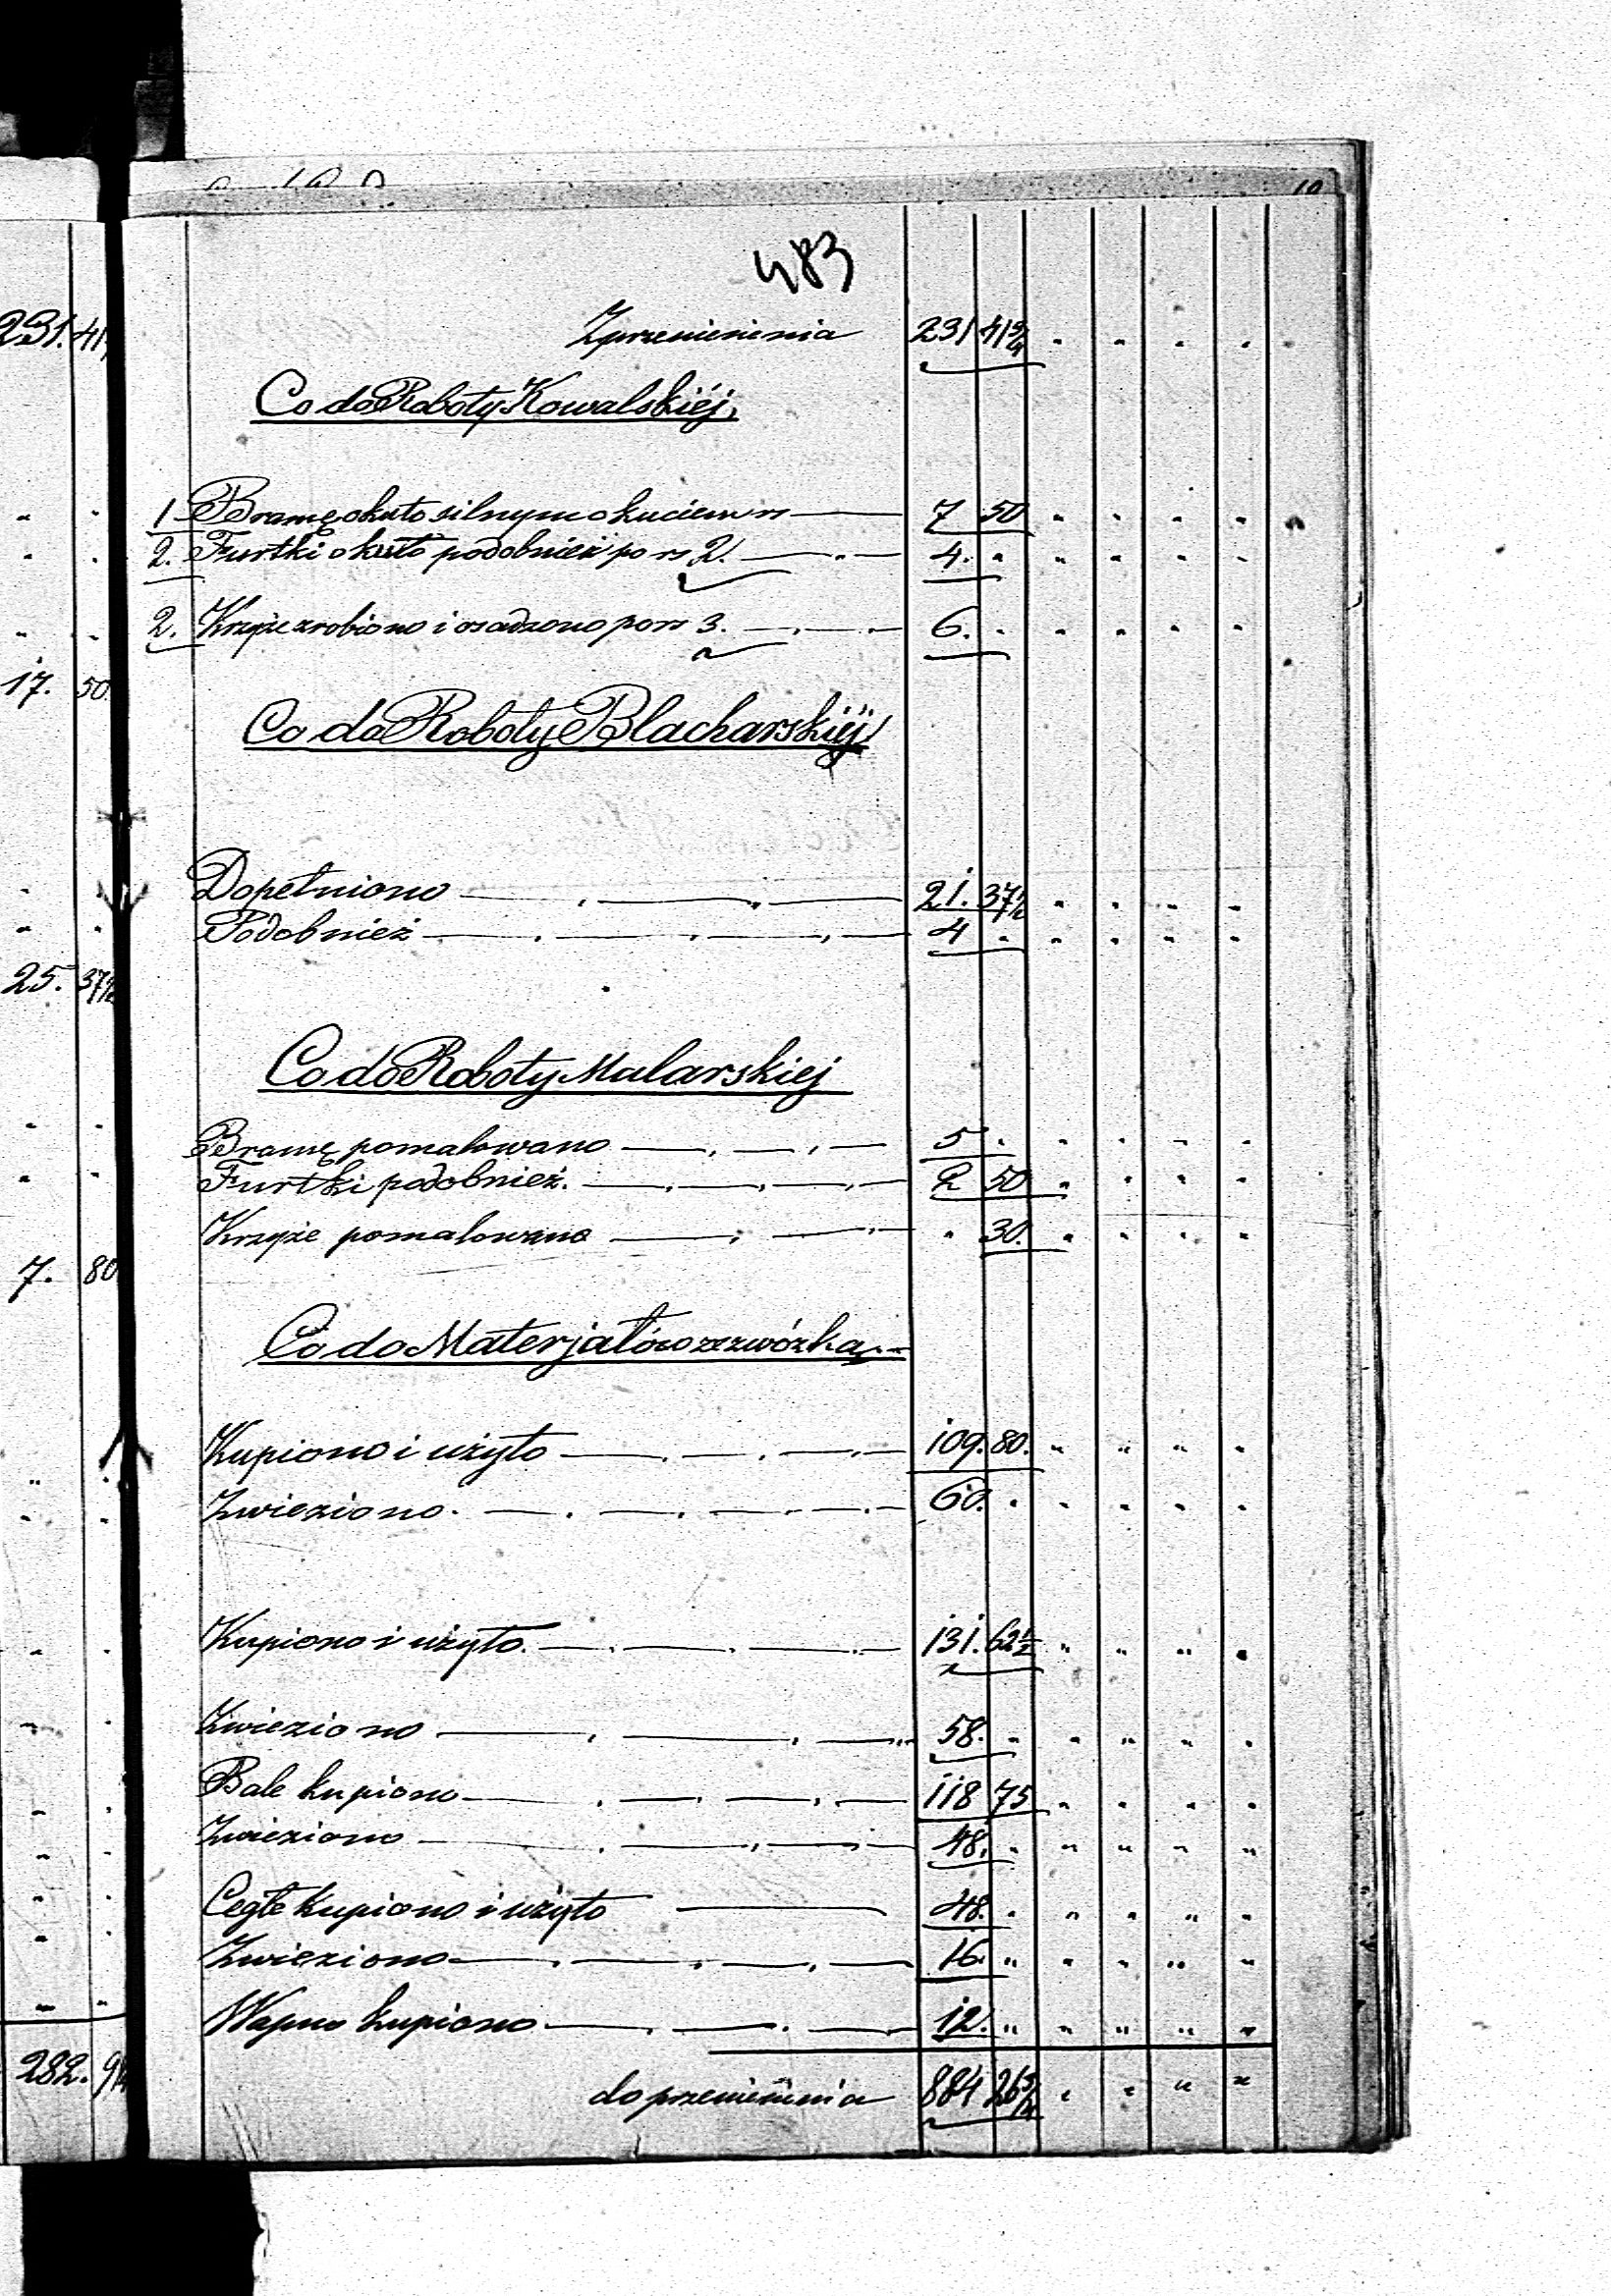 10
483
231. 41
Zprzeniesienia 231 41 3/4 " " " " "
Co do Roboty Kowalskiéj,
1 Bramę okuto silnym okuciem rs — 7 50 " " " " "
2. Furtki okuto podobnież po rs 2. — " — 4. " " " " " "
2. Krzyże zrobiono i osadzono po rs 3. — " — 6. " " " " " "
17. 50
Co do Roboty Blacharskiéj
Dopełniono — " — " — 21. 37 1/2 " " " "
Podobnież — " — " — " — 4 " " " " "
25. 37 1/2
Co do Roboty Malarskiej
Bramę pomalowano — " — " — 5 " " " " "
Furtki podobnież. — " — " — " — 2 50 " " " "
Krzyże pomalowano — " — " — " 30. " " " "
7. 80
Co do Materjałów ze zwózką
Kupiono i użyto — " — " — " — 109. 80. " " " "
Zwieziono. — " — " — " — " — 60. " " " " "
Kupiono i użyto. — " — " — " — 131. 62 1/2 " " " "
Zwieziono — " — " — " 58. " " " " "
Bale kupiono — " — " — " — " — 118 75 " " " "
Zwieziono — " — " — " — 48. " " " " "
Cegłę kupiono i użyto — 48. " " " " "
Zwieziono — " — " — " — 16. " " " " "
Wapno kupiono — " — " — 12. " " " " "
282. 9
do przeniesienia 884 26 3/4 " " " "